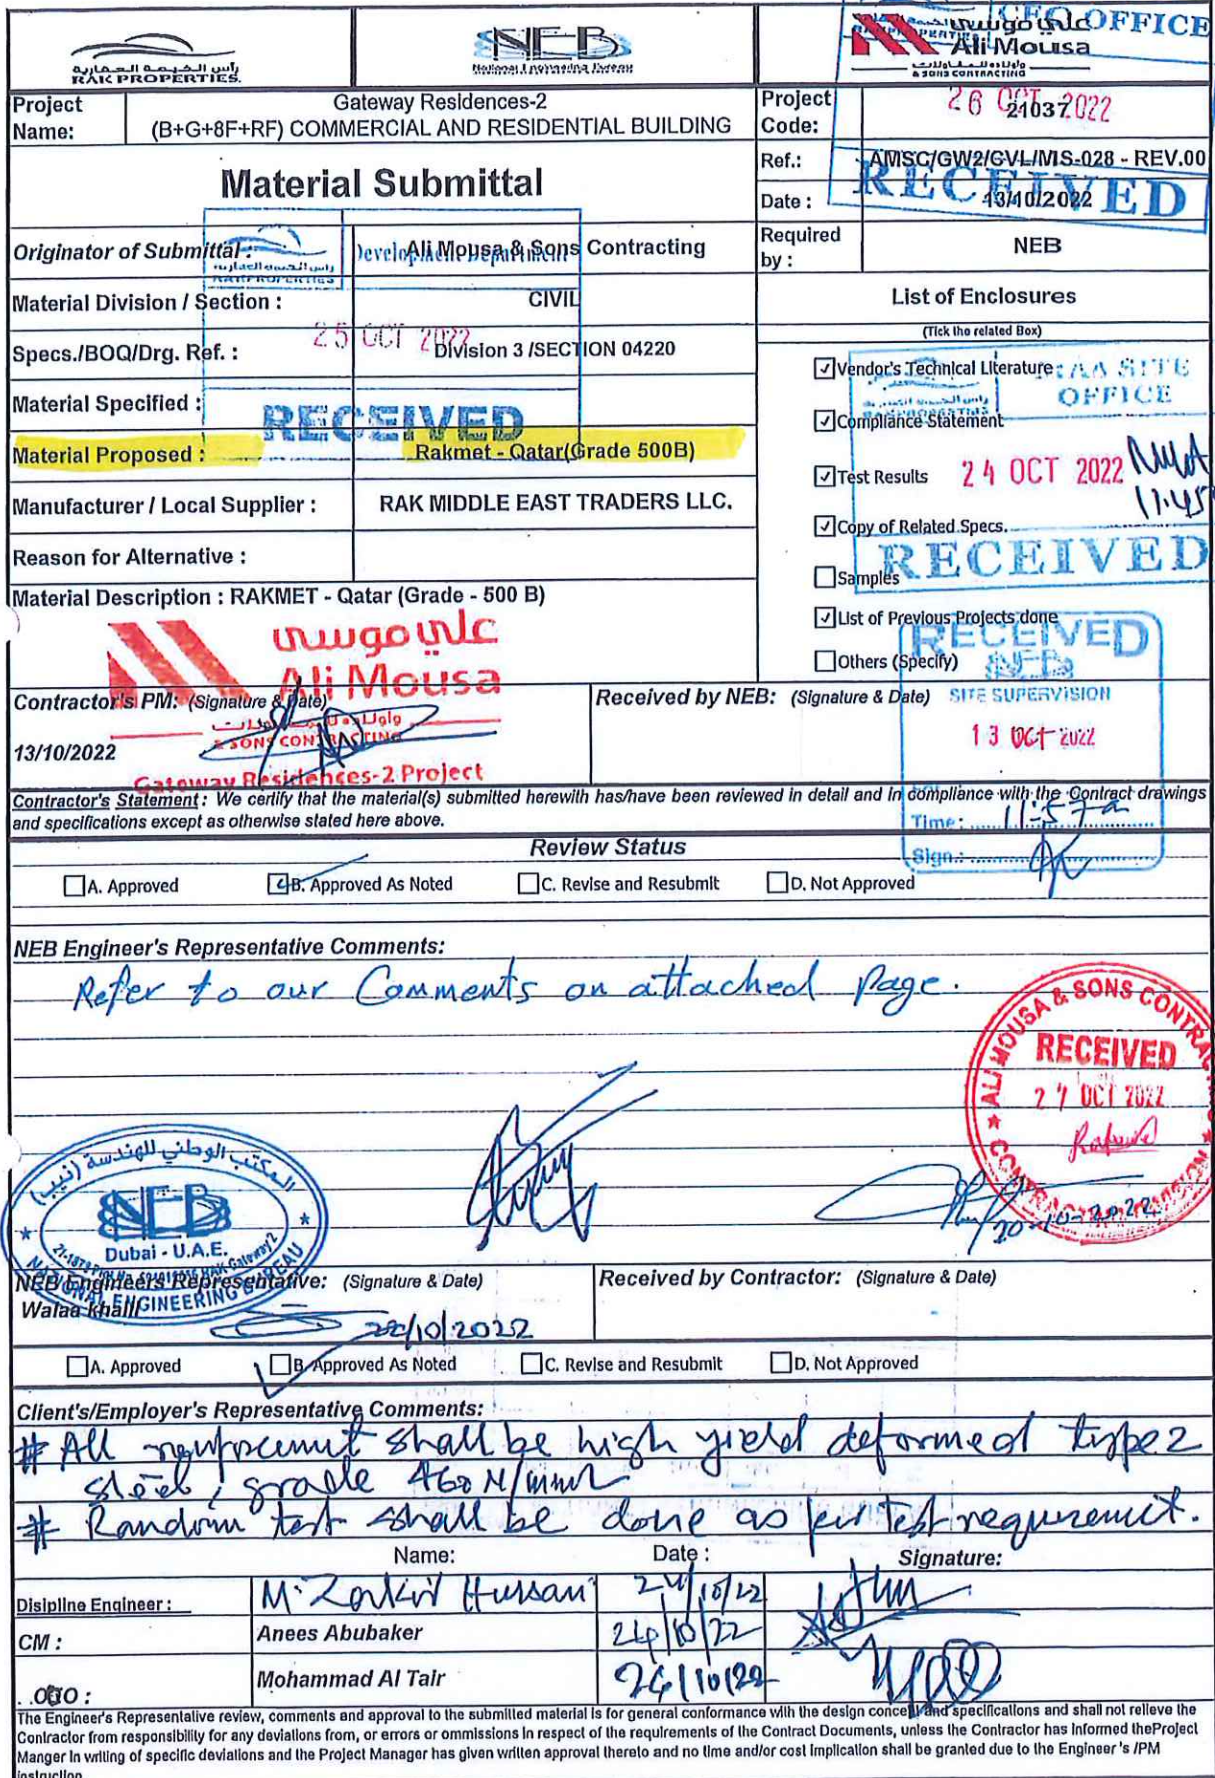 رأس الخيمة العقارية
RAK PROPERTIES.
NEB
National Engineering Bureau
علي موسى
Ali Mousa
وأولاده للمقاولات
& SONS CONTRACTING
CEO OFFICE
26 OCT 2022
RECEIVED
Project Name:
Gateway Residences-2
(B+G+8F+RF) COMMERCIAL AND RESIDENTIAL BUILDING
Project Code:
21037
Material Submittal
Ref.:
AMSC/GW2/CVL/MS-028 - REV.00
Date :
13/10/2022
Originator of Submittal :
Ali Mousa & Sons Contracting
Required by :
NEB
Development Department
رأس الخيمة العقارية
RAK PROPERTIES
25 OCT 2022
RECEIVED
Material Division / Section :
CIVIL
Specs./BOQ/Drg. Ref. :
Division 3 /SECTION 04220
Material Specified :
Material Proposed :
Rakmet - Qatar(Grade 500B)
Manufacturer / Local Supplier :
RAK MIDDLE EAST TRADERS LLC.
Reason for Alternative :
Material Description : RAKMET - Qatar (Grade - 500 B)
List of Enclosures
(Tick the related Box)
Vendor's Technical Literature
Compliance Statement
Test Results
Copy of Related Specs.
Samples
List of Previous Projects done
Others (Specify)
SITE OFFICE
24 OCT 2022
11:45
RECEIVED
علي موسى
Ali Mousa
وأولاده للمقاولات
& SONS CONTRACTING
Gateway Residences-2 Project
Contractor's PM: (Signature & Date)
13/10/2022
Received by NEB: (Signature & Date)
RECEIVED
NEB
SITE SUPERVISION
13 OCT 2022
Time: 11:57 a
Sign.:
Contractor's Statement : We certify that the material(s) submitted herewith has/have been reviewed in detail and in compliance with the Contract drawings
and specifications except as otherwise stated here above.
Review Status
A. Approved
B. Approved As Noted
C. Revise and Resubmit
D. Not Approved
NEB Engineer's Representative Comments:
Refer to our Comments on attached page.
ALI MOUSA & SONS CONTRACTING
RECEIVED
27 OCT 2022
20-10-2022
المكتب الوطني للهندسة (نيب)
NEB
Dubai - U.A.E.
NATIONAL ENGINEERING BUREAU
NEB Engineers Representative: (Signature & Date)
Walaa khalil
22/10/2022
Received by Contractor: (Signature & Date)
A. Approved
B. Approved As Noted
C. Revise and Resubmit
D. Not Approved
Client's/Employer's Representative Comments:
# All reinforcement shall be high yield deformed type 2
steel, grade 460 N/mm2
# Random test shall be done as per Test requirement.
Name:
Date :
Signature:
Disipline Engineer :
M. Zakir Hussain
24/10/22
CM :
Anees Abubaker
24/10/22
Mohammad Al Tair
24/10/22
The Engineer's Representative review, comments and approval to the submitted material is for general conformance with the design concept and specifications and shall not relieve the
Contractor from responsibility for any deviations from, or errors or ommissions in respect of the requirements of the Contract Documents, unless the Contractor has informed theProject
Manger in writing of specific deviations and the Project Manager has given written approval thereto and no time and/or cost implication shall be granted due to the Engineer's /PM
instruction